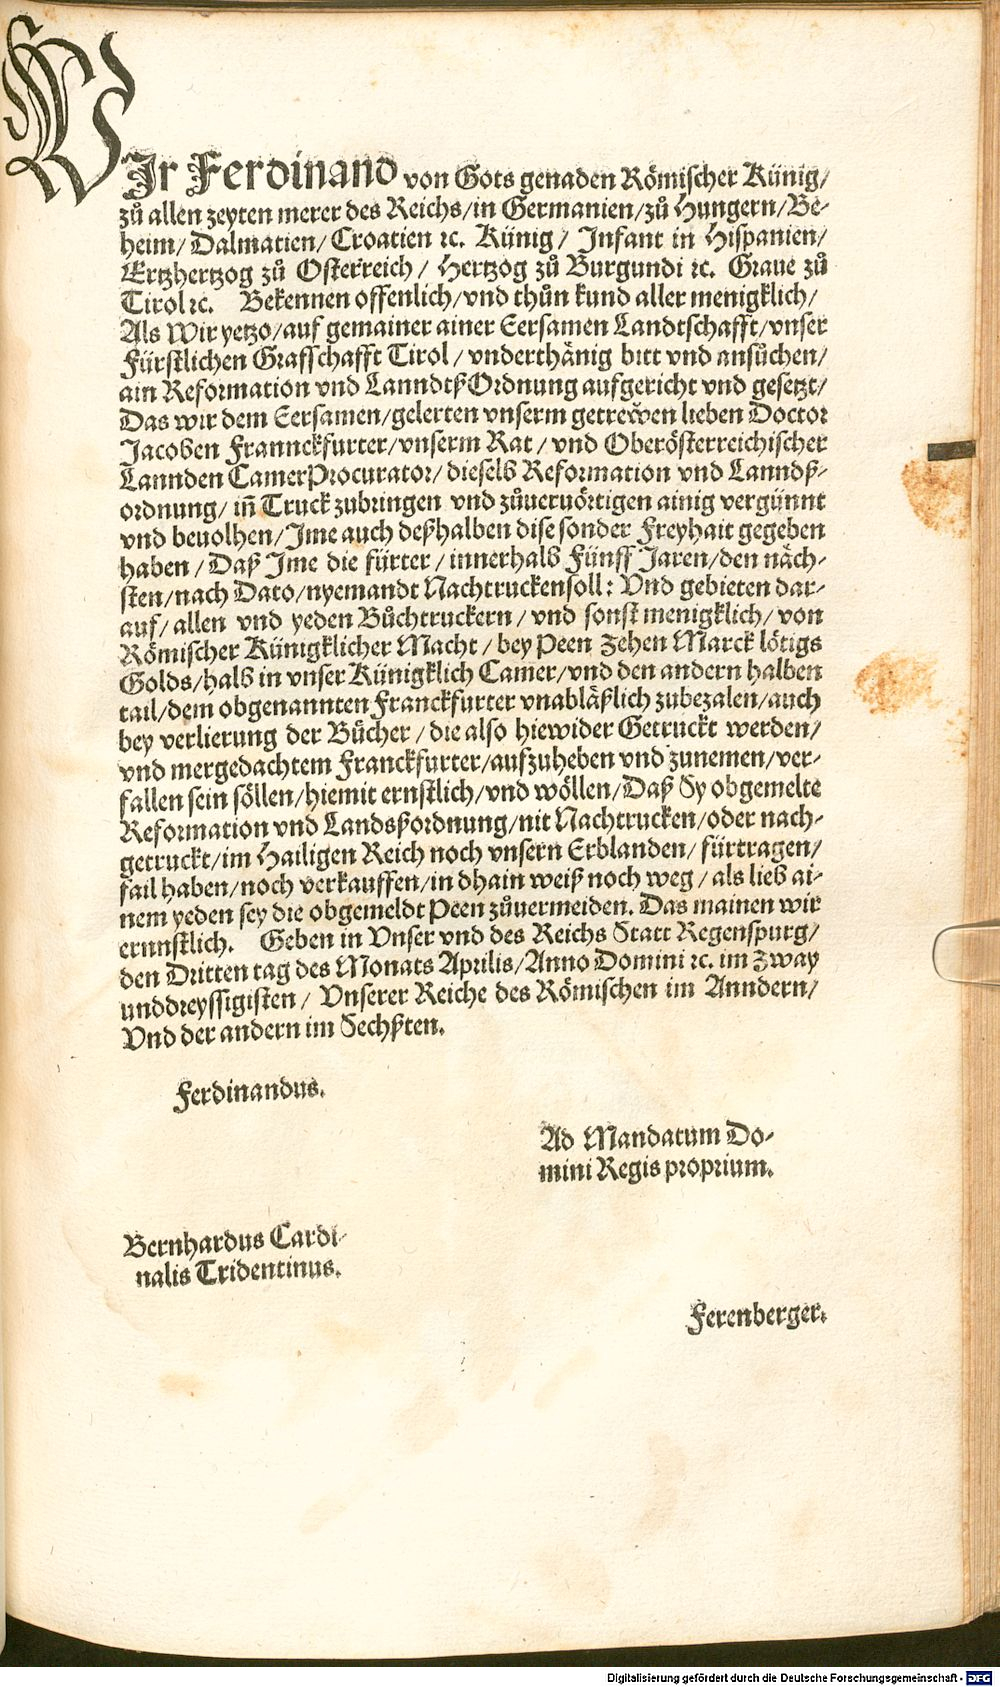 WIr Ferdinand von Gots genaden Römischer Künig/
zů allen zeyten merer des Reichs/in Germanien/zů Hungern/Be-
heim/ Dalmatien/ Croatien ꝛc. Künig/ Infant in Hispanien/
Ertzhertzog zů Osterreich/ Hertzog zů Burgundi ꝛc. Graue zů
Tirol ꝛc. Bekennen offenlich/vnd thůn kund aller menigklich/
Als Wir yetzo/auf gemainer ainer Eersamen Landtschafft/vnser
Fürstlichen Grafschafft Tirol/ vnderthänig bitt vnd ansůchen/
ain Reformation vnd LanndtßOrdnung aufgericht vnd gesetzt/
Das wir dem Eersamen/gelerten vnserm getrewen lieben Doctor
Jacoben Frannckfurter/vnserm Rat/ vnd Oberösterreichischer
Lannden CamerProcurator/ diesels Reformation vnd Lanndß-
ordnung/ iñ Truck zubringen vnd zůueruörtigen ainig vergünnt
vnd beuolhen/Ime auch deßhalben dise sonder Freyhait gegeben
haben/ Daß Ime die fürter/ innerhalb Fünff Jaren/den näch-
sten/nach Dato/nyemandt Nachtrucken soll: Vnd gebieten dar-
auf/ allen vnd yeden Bůchtruckern/ vnd sonst menigklich/ von
Römischer Künigklicher Macht/ bey Peen Zehen Marck lötigs
Golds/halb in vnser Künigklich Camer/vnd den andern halben
tail/dem obgenannten Franckfurter vnabläßlich zubezalen/auch
bey verlierung der Bücher/ die also hiewider Getruckt werden/
vnd mergedachtem Franckfurter/aufzuheben vnd zunemen/ver-
fallen sein söllen/hiemit ernstlich/vnd wöllen/Daß Sy obgemelte
Reformation vnd Landsßordnung/nit Nachtrucken/oder nach-
getruckt/im Hailigen Reich noch vnsern Erblanden/ fürtragen/
fail haben/noch verkauffen/in dhain weiß noch weg/ als lieb ai-
nem yeden sey die obgemeldt Peen zůuermeiden. Das mainen wir
ernnstlich. Geben in Vnser vnd des Reichs Statt Regenspurg/
den Dritten tag des Monats Aprilis/Anno Domini ꝛc. im Zway
unddreyssigisten/ Vnserer Reiche des Römischen im Anndern/
Vnd der andern im Sechßten.
Ferdinandus.
Ad Mandatum Do-
mini Regis proprium.
Bernhardus Cardi-
nalis Tridentinus.
Ferenberger.
Digitalisierung gefördert durch die Deutsche Forschungsgemeinschaft - DFG